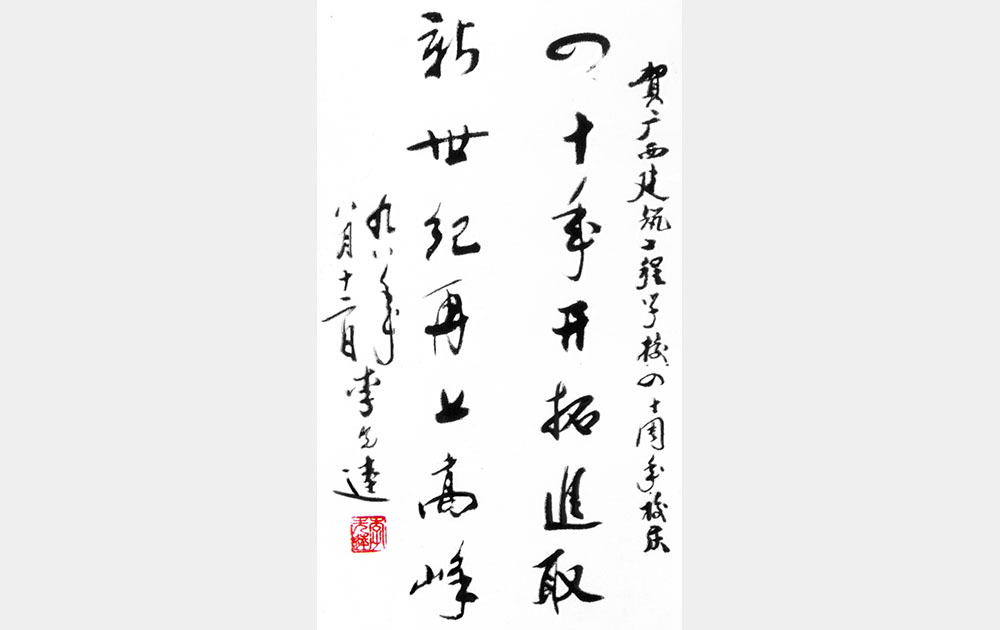 贺广西建筑工程学校四十周年校庆
四十年开拓進取
新世纪再上高峰
九八年
八月十二日
李先逵